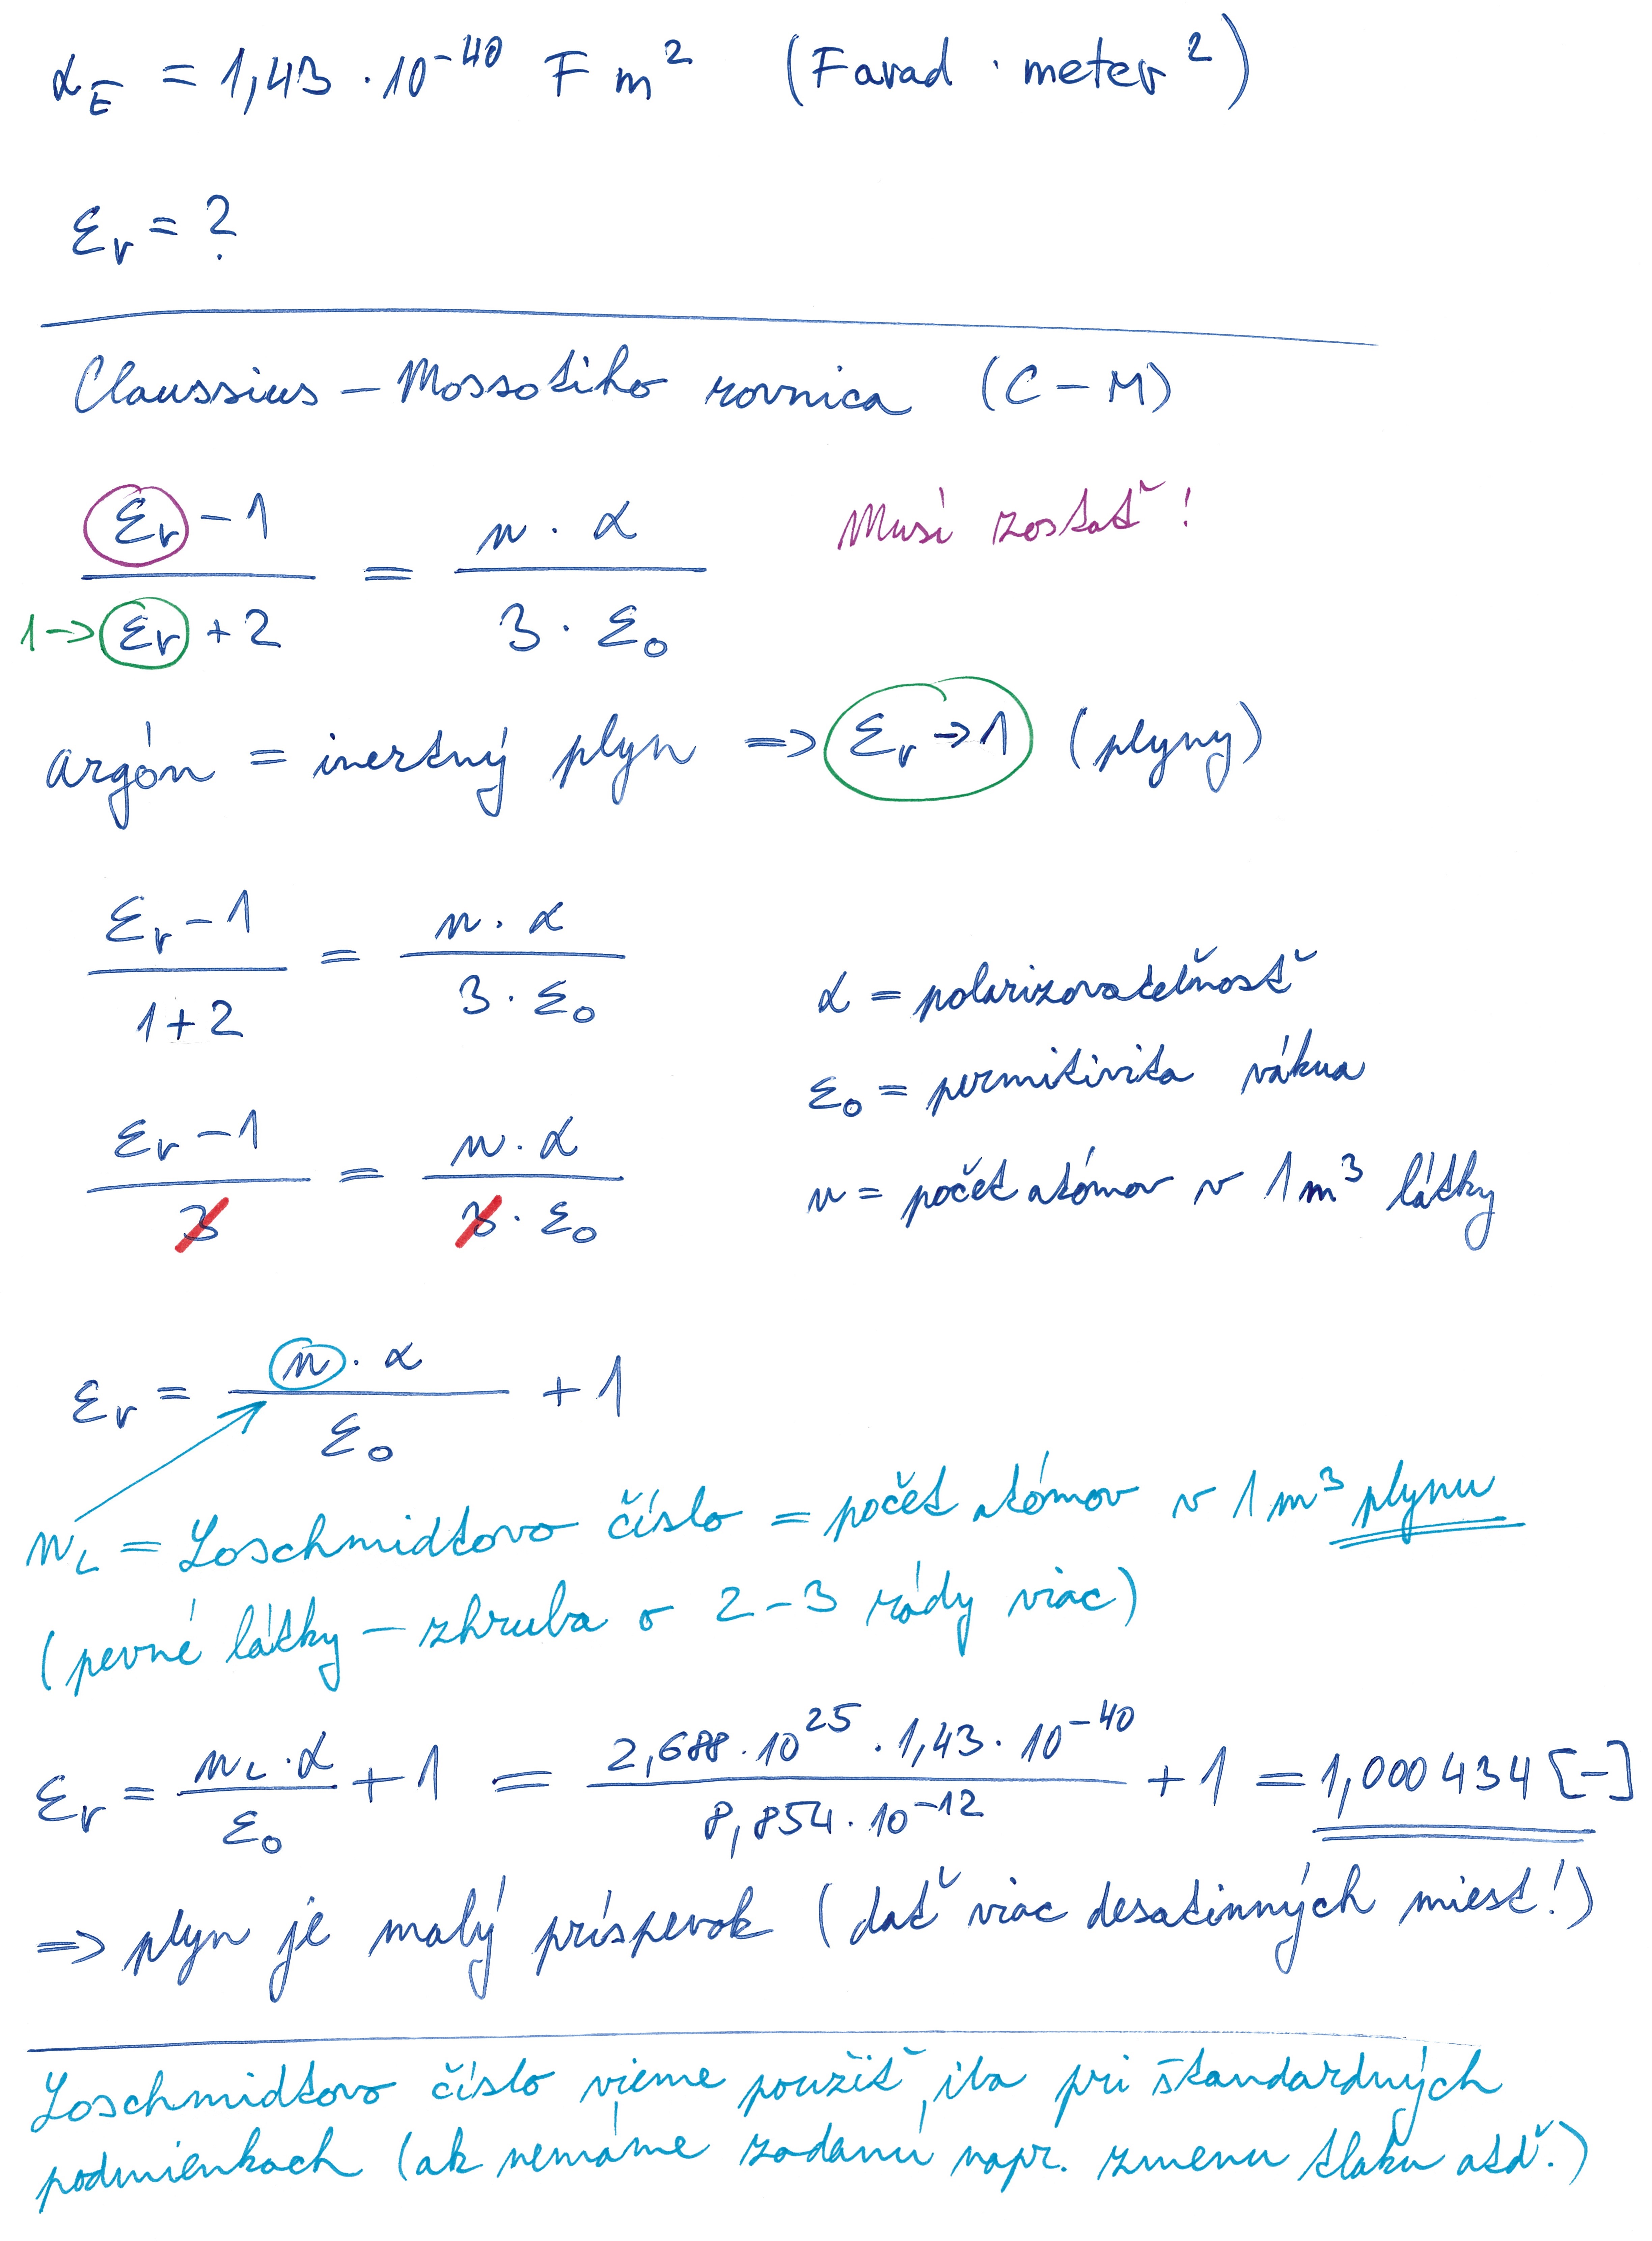 α_E = 1,43 · 10^-40 F m^2 (Farad · meter^2)
ε_r = ?
Claussius – Mossotiho rovnica (C – M)
(ε_r - 1) / (ε_r + 2) = (n · α) / (3 · ε_0) Musí zostať!
1 ->
argón = inertný plyn => ε_r -> 1 (plyny)
(ε_r - 1) / (1 + 2) = (n · α) / (3 · ε_0)
α = polarizovateľnosť
ε_0 = permitivita vákua
(ε_r - 1) / 3 = (n · α) / (3 · ε_0)
n = počet atómov v 1 m^3 látky
ε_r = (n · α) / ε_0 + 1
n_L = Loschmidtovo číslo = počet atómov v 1 m^3 plynu
(pevné látky – zhruba o 2 – 3 rády viac)
ε_r = (n_L · α) / ε_0 + 1 = (2,688 · 10^25 · 1,43 · 10^-40) / (8,854 · 10^-12) + 1 = 1,000 434 [-]
=> plyn je malý príspevok (dať viac desatinných miest!)
Loschmidtovo číslo vieme použiť iba pri štandardných
podmienkach (ak nemáme zadanú napr. zmenu tlaku atď.)